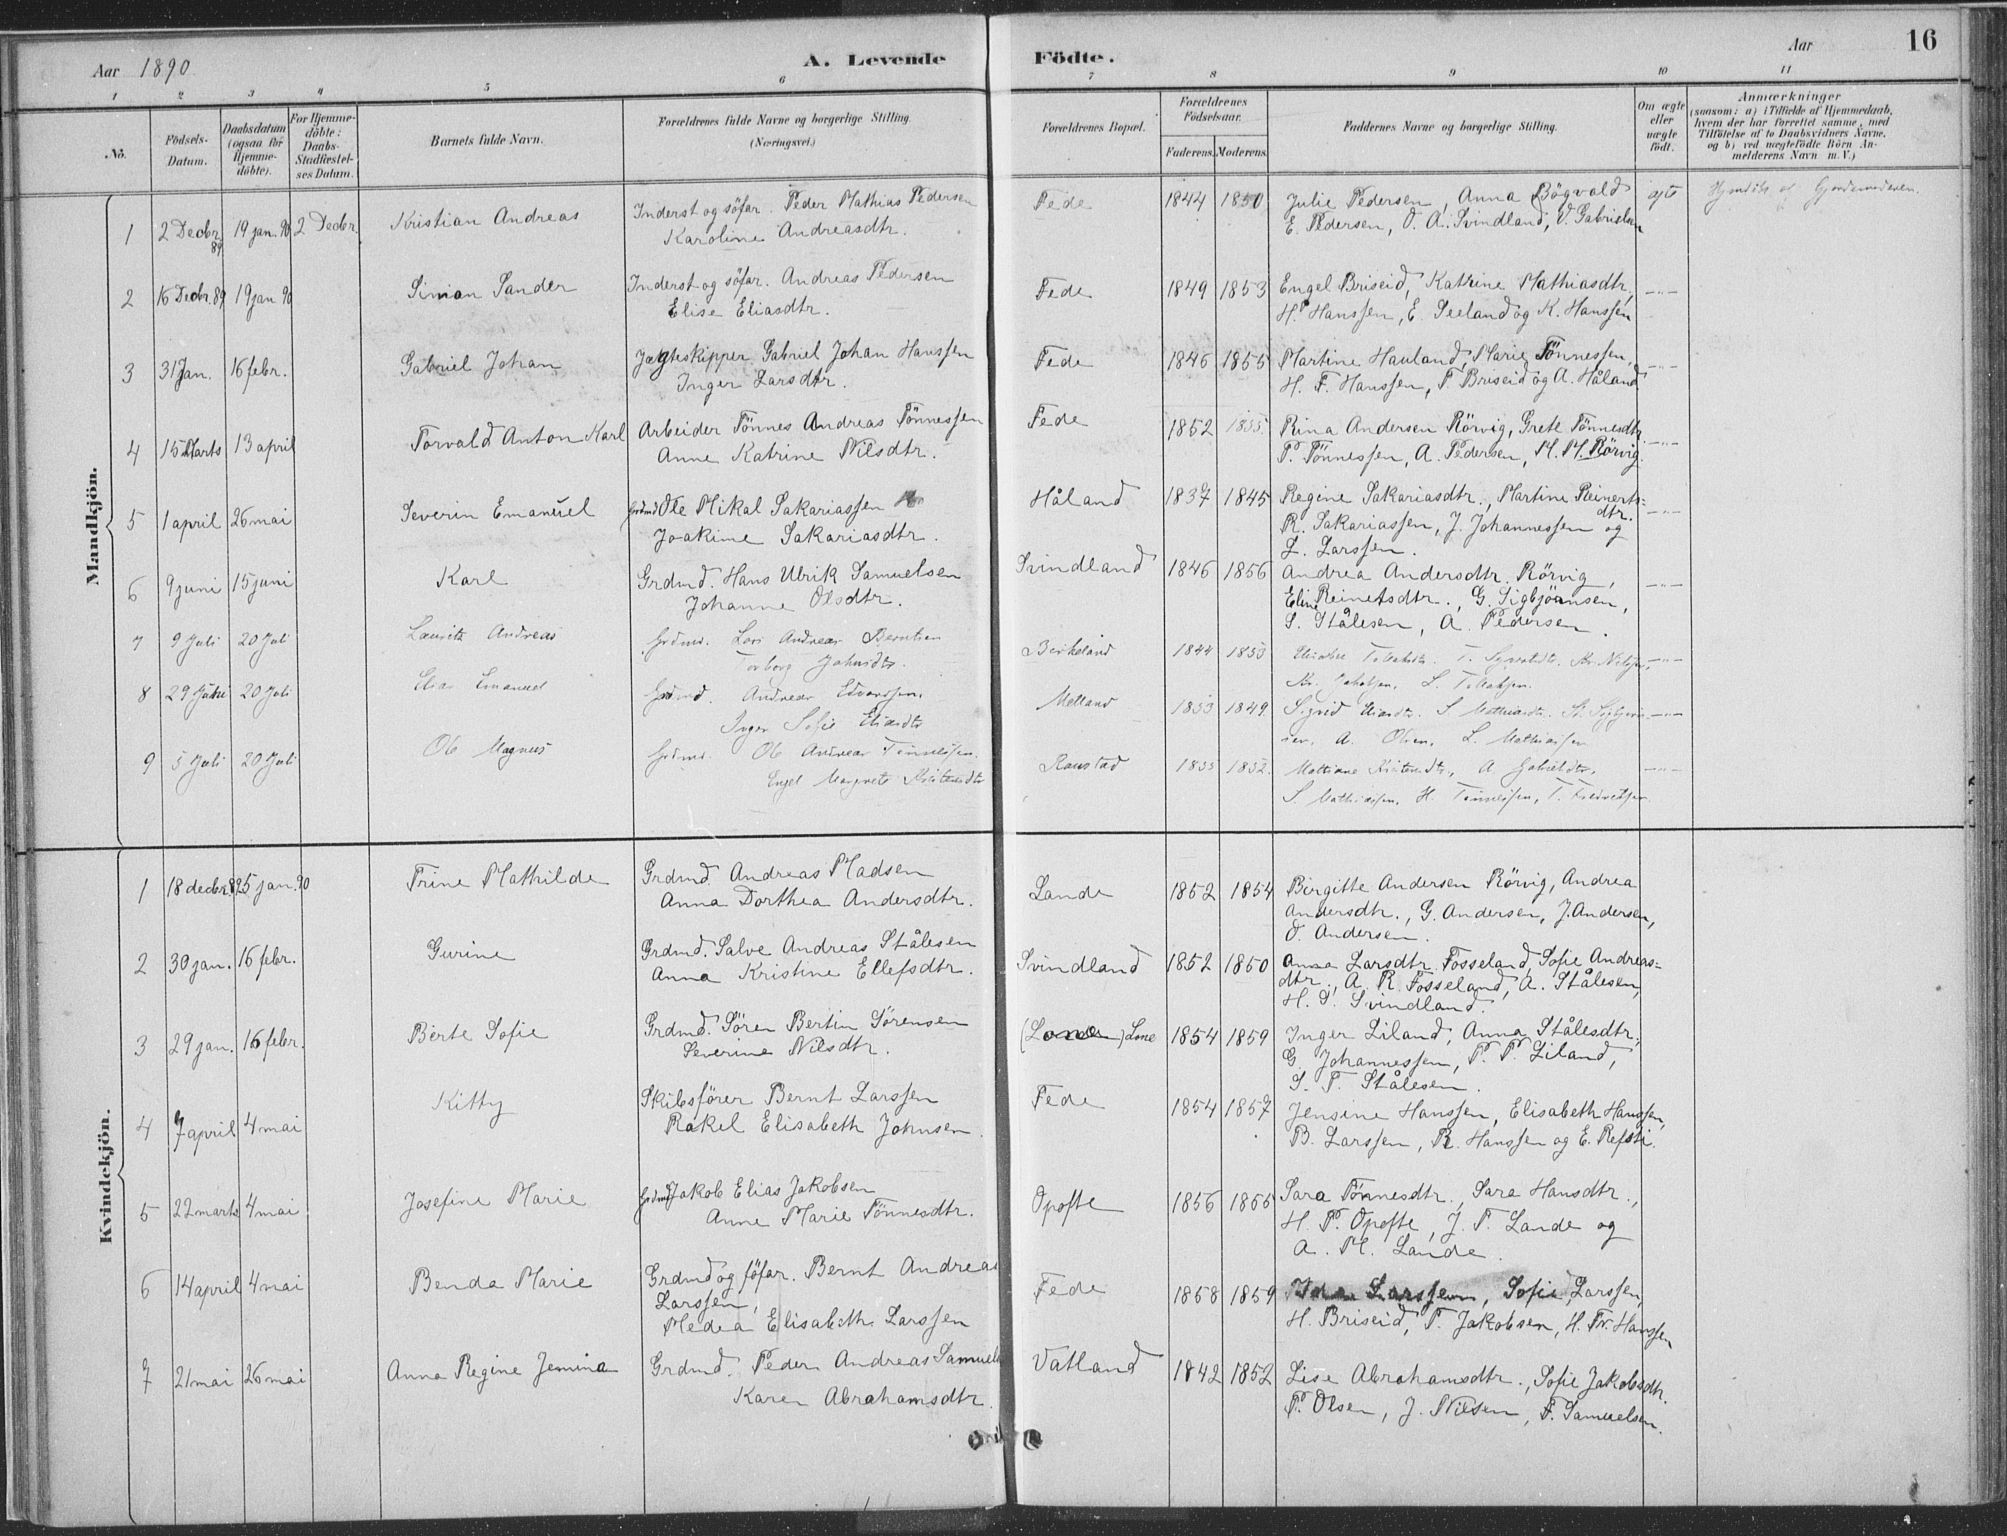 Aar 1890 A. Levende Födte. Aar 16
1 2 3 4 5 6 7 8 9 10 11
No. Födsels-Datum. Daabsdatum (ogsaa for Hjemme-döbte). For Hjemme-döbte: Daabs-Stadfæstel-ses Datum. Barnets fulde Navn. Forældrenes fulde Navne og borgerlige Stilling. (Næringsvei.) Forældrenes Bopæl. Forældrenes Födselsaar. Faderens. Moderens. Faddernes Navne og borgerlige Stilling. Om ægte eller uægte födt. Anmærkninger (saasom: a) i Tilfælde af Hjemmedaab, hvem der har forrettet samme, med Tilföielse af to Daabsvidners Navne, og b) ved uægtefödte Börn An-melderens Navn m. V.)
Mandkjön.
1 2 Decbr 89 19 jan. 90 2 Decbr. Kristian Andreas Inderst og söfar. Peder Mathias Pedersen Fede 1844 1850 Julie Pedersen, Anna Bögvald
Karoline Andreasdtr. E. Pedersen, O. A. Svindland, V. Gabrielsen
2 16 Decbr. 89 19 jan 90 Simon Sander Inderst og söfar. Andreas Pedersen Fede 1849 1853 Engel Briseid, Katrine Mathiasdtr, -"-
Elise Eliasdtr. H. Hanssen, E. Seeland og K. Hanssen
3 31 Jan. 16 febr. Gabriel Johan Jægteskipper Gabriel Johan Hanssen Fede 1846 1855 Martine Hauland, Marie Tönnessen, -"-
Inger Larsdtr. H. F. Hanssen, T. Briseid og A. Håland
4 15 Marts 13 april Torvald Anton Karl Arbeider Tönnes Andreas Tönnessen Fede 1852 1855 Rina Andersen Rörvig, Grete Tönnesdtr. -"-
Anne Katrine Nilsdtr. P. Tönnessen, A. Pedersen, M. M. Rörvig.
5 1 april 26 mai Severin Emanuel Grdmd Ole Mikal Sakariassen Håland 1837 1845 Regine Sakariasdtr., Martine Reinerts= -"-
dtr.
Joakime Sakariasdtr. R. Sakariassen, J. Johannessen og
L. Larssen.
6 9 juni 15 juni Karl Grdmd. Hans Ulrik Samuelsen Svindland 1846 1856 Andrea Andersdtr. Rörvig, -"-
Johanne Olsdtr. Eline Reinetsdtr., G. Sigbjörnsen,
S. Stålesen, A. Pedersen.
7 9 Juli 20 Juli Laurits Andreas Grdmd. Lars Andreas Berntsen Birkeland 1844 1853 -"-
8 29 Juni 20 Juli Elias Emanuel Grdmd. Andreas Edvardssen, Melland 1853 1849 Sigrid Eliasdtr. S. Mathiasdtr. -"-
Inger Sofie Eliasdtr A. Olsen. L. Mathiassen
9 5 Juli 20 Juli Ole Magnus Grdmd. Ole Andreas Tönnessen. Raustad 1855 1852. A. Gabrielsdtr. -"-
Engel Margrete Kristensdtr S. Mathiassen. H. Tönnessen, T. Fredriksen
Kvindekjön.
1 18 decbr. 89 25 jan. 90 Trine Mathilde Grdmd. Andreas Madsen Lande 1852 1854 Birgitte Andersen Rörvig, Andrea
Anna Dorthea Andersdtr. Andersdtr., G. Andersen, J. Andersen,
O. Andersen.
2 30 jan. 16 febr. Gurine Grdmd. Salve Andreas Stålesen Svindland 1852 1850 Anna Larsdtr. Fosseland, Sofie Andreas=
Anna Kristine Ellefsdtr. dtr., A. R. Fosseland, A. Stålesen,
H. S. Svindland.
3 29 jan. 16 febr. Berte Sofie Grdmd. Sören Bertin Sörensen (Lone) Lone 1854 1859 Inger Liland, Anna Stålesdtr.,
Severine Nilsdtr. G. Johannessen, P. P. Liland,
S. T. Stålesen.
4 7 april 4 mai Kitty Skibsförer Bernt Larssen Fede 1854 1857 Jensine Hanssen, Elisabeth Hanssen,
Rakel Elisabeth Johnsen. B. Larssen, R. Hanssen og E. Refsti.
5 22 marts 4 mai Josefine Marie Grdmd Jakob Elias Jakobsen Opofte 1856 1865 Sara Tönnesdtr., Sara Hansdtr.,
Anne Marie Tönnesdtr. H. P. Opofte, J. T. Lande og
A. M. Lande.
6 14 april 4 mai Benda Marie Grdmd og söfar. Bernt Andreas Fede 1858 1859 Ida Larssen, Sofie Larssen,
Larssen, H. Briseid, T. Jakobsen, H. Fr. Hanssen
Medea Elisabeth Larssen
7 21 mai 26 mai Anna Regine Jemina Grdmd. Peder Andreas Samuels Vatland 1842 1852 Lise Abrahamsdtr., Sofie Jakobsdtr.
Karen Abrahamsdtr. P. Olsen, J. Nilsen, F. Samuelsen.